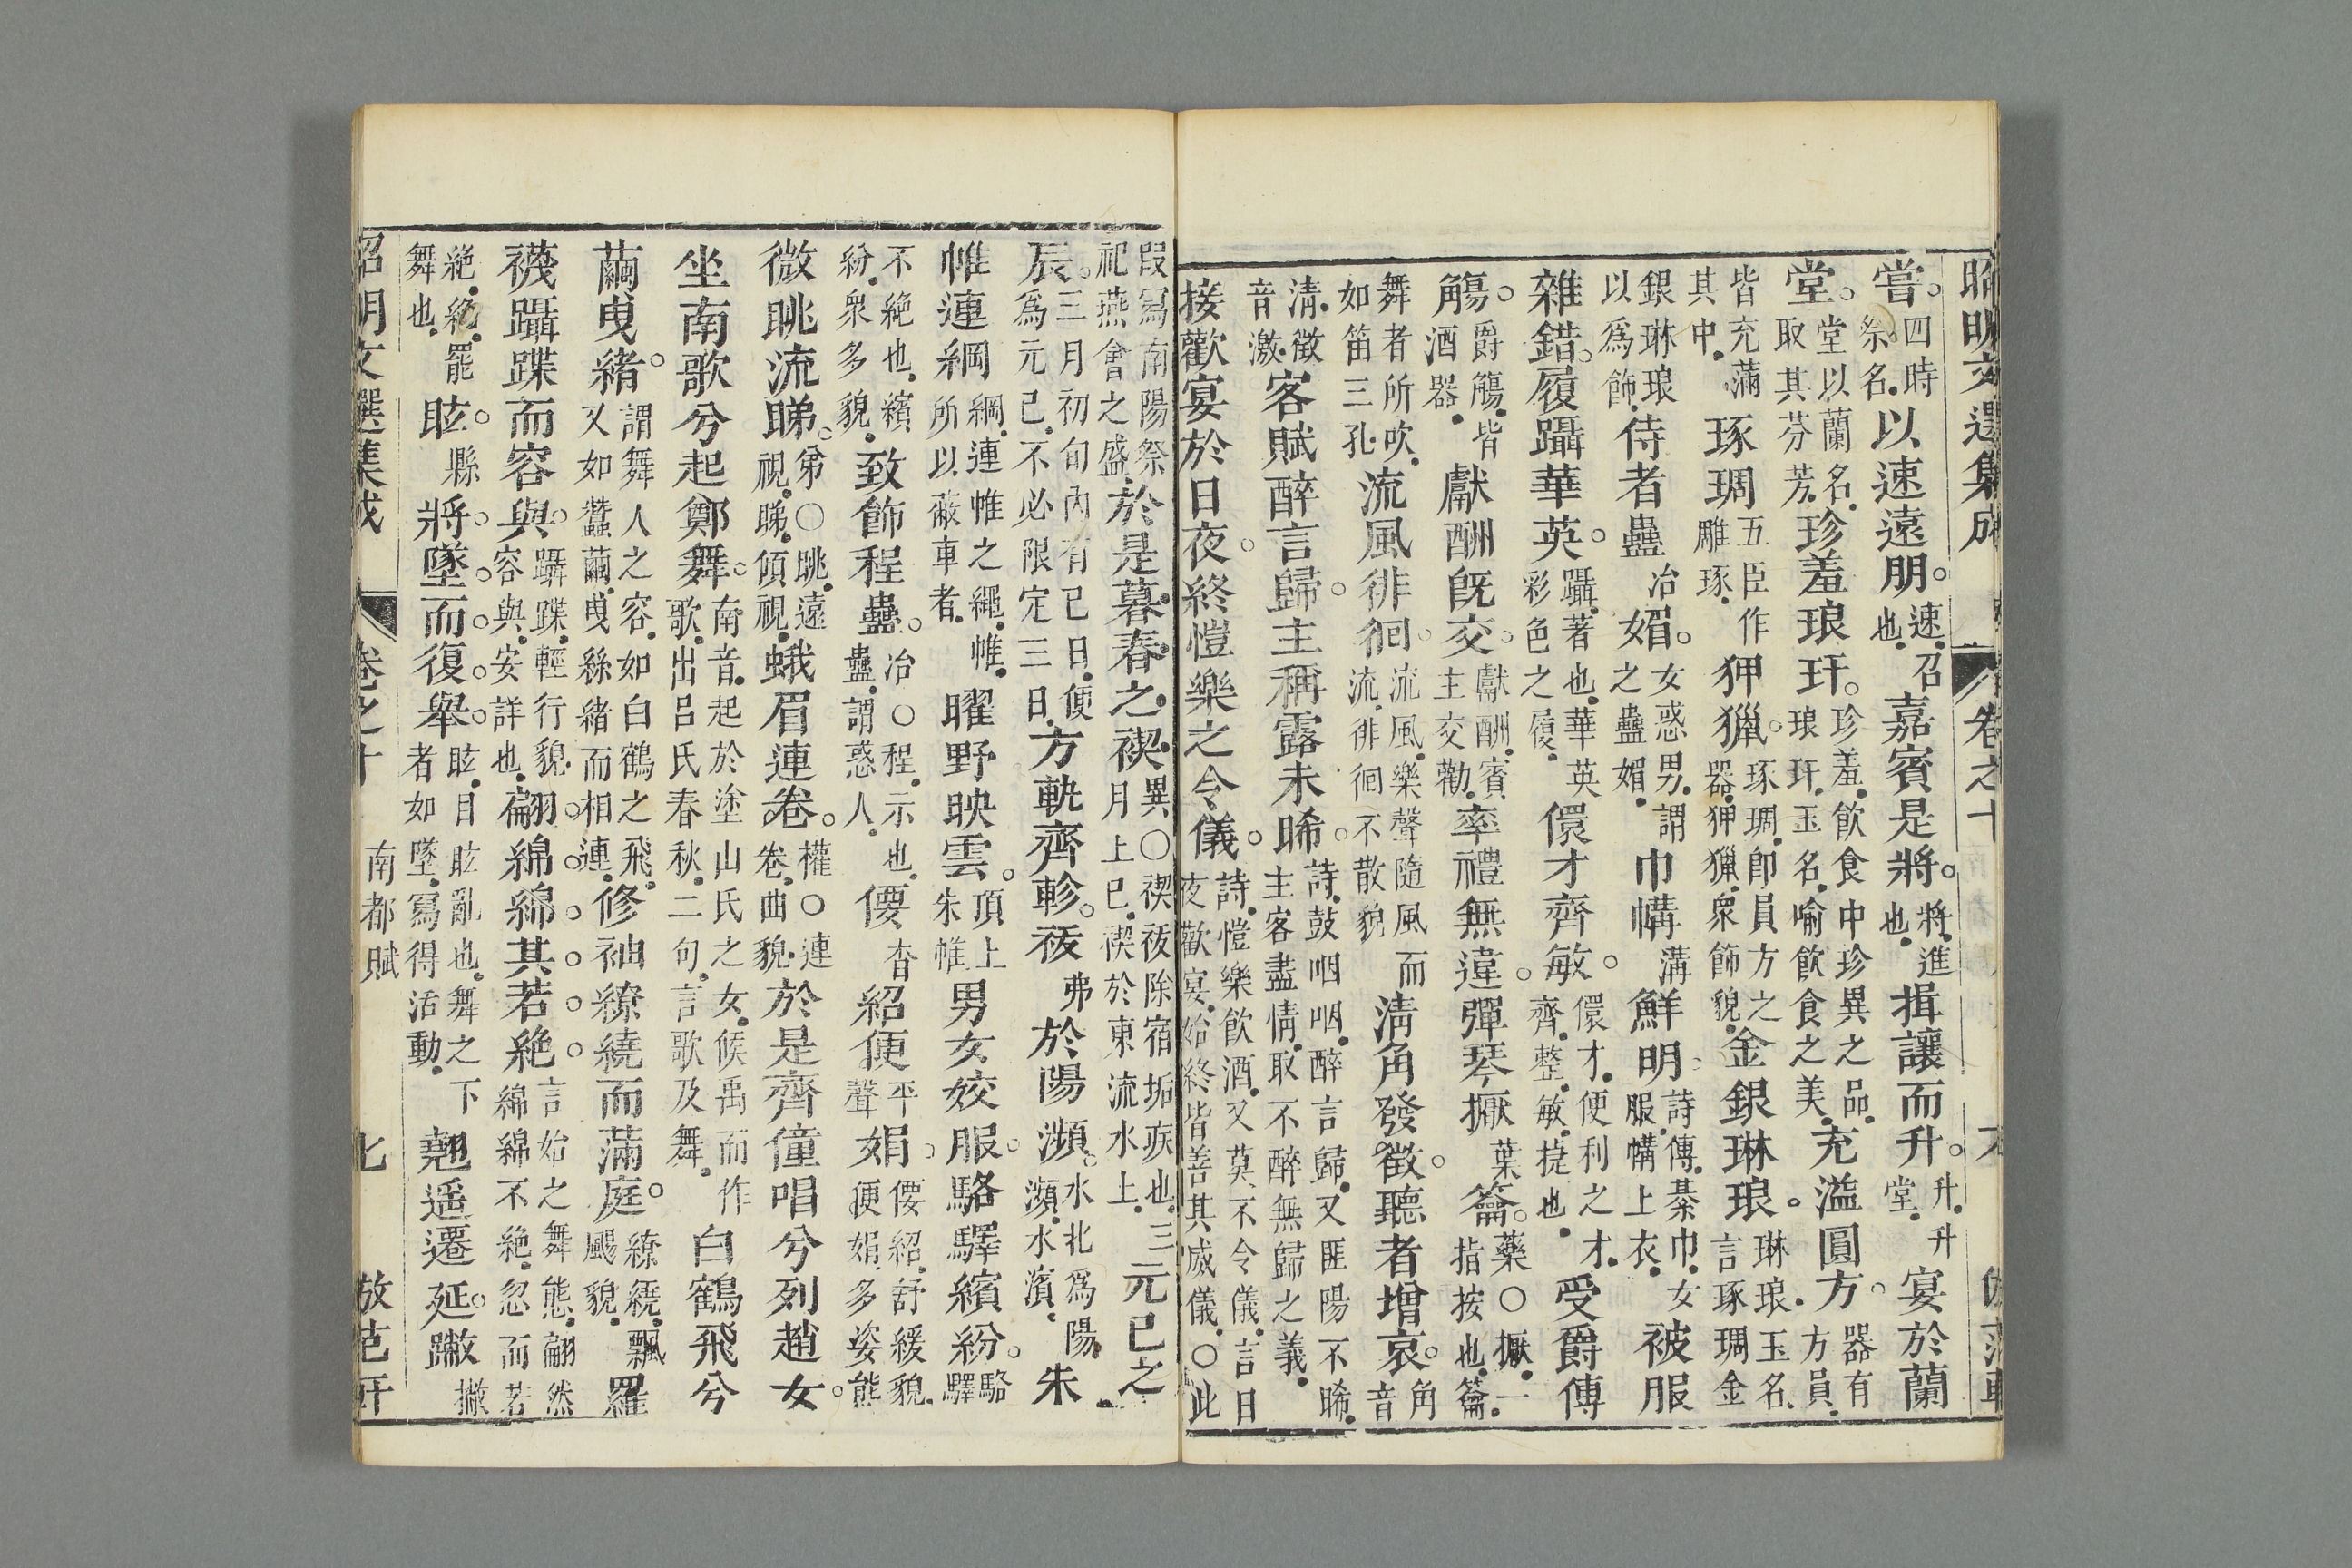 昭明文選集成 卷之十
嘗。四時祭名。以速遠朋。速。召也。嘉賓是將。將。進也。揖讓而升。升。升堂。宴於蘭
堂。堂以蘭名。取其芬芳。珍羞琅玕。珍羞。飲食中珍異之品。琅玕。玉名。喻飲食之美。充溢圓方。器有方員。
皆充滿其中。琢琱五臣作雕琢。狎獵。琢琱。卽員方之器。狎獵。衆飾貌。金銀琳琅。琳琅。玉名。言琢琱金
銀琳琅以爲飾。侍者蠱冶媚。女惑男。謂之蠱媚。巾㡚溝鮮明。詩傳。綦巾。女服。㡚上衣。被服
雜錯。履躡華英。躡。著也。華英彩色之履。儇才齊敏。儇才。便利之才。齊。整。敏。捷也。受爵傳
觴。爵觴。皆酒器。獻酬旣交。獻酬。賓主交勸。率禮無違。彈琴擫葉籥。藥〇擫。一指按也。籥。
舞者所吹。如笛三孔。流風徘徊。流風。樂聲隨風而流。徘徊不散貌淸角發徵。聽者增哀。角音
淸。徵音激。客賦醉言歸。主稱露未晞。詩。鼓咽咽。醉言歸。又匪陽不晞。主客盡情。取不醉無歸之義。
接歡宴於日夜。終愷樂之令儀。詩。愷樂飲酒。又莫不令儀。言日夜歡宴。始終皆善其威儀。〇此
叚寫南陽祭祀燕會之盛。於是暮春之禊。異〇禊。祓除宿垢疢也。三月上巳。禊於東流水上。元巳之
辰。三月初旬內有巳日。便爲元巳。不必限定三日。方軌齊軫。祓弗於陽瀕。水北爲陽。瀕。水濱、朱
帷連網。綱。連帷之繩。帷。所以蔽車者。曜野映雲。頂上朱帷男女姣服。駱驛繽紛。駱驛
不絶也。繽紛。衆多貌。致飾程蠱。冶〇程。示也。蠱。謂惑人。偠杳紹便平聲娟。偠紹。舒緩貌。便娟。多姿態
微眺流睇。弟〇眺。遠視。睇。傾視。蛾眉連卷。權〇連卷。曲貌。於是齊僮唱兮列趙女。
坐南歌兮起鄭舞。南音。起於塗山氏之女。候禹而作歌。出呂氏春秋。二句。言歌及舞。白鶴飛兮
繭曳緒。謂舞人之容。如白鶴之飛。又如蠶繭。曳絲緒而相連。修袖繚繞而滿庭。繚繞。飄颺貌。羅
襪躡蹀而容與。躡蹀。輕行貌。容與。安詳也。翩綿綿其若絶。言始之舞態。翩然綿綿不絶。忽而若
絶。絶。罷舞也。眩縣將墜而復舉。眩。目眩亂也。舞之下者如墜。寫得活動。翹遥遷延。蹩撇
昭明文選集成 卷之十 南都賦 七 倣范軒